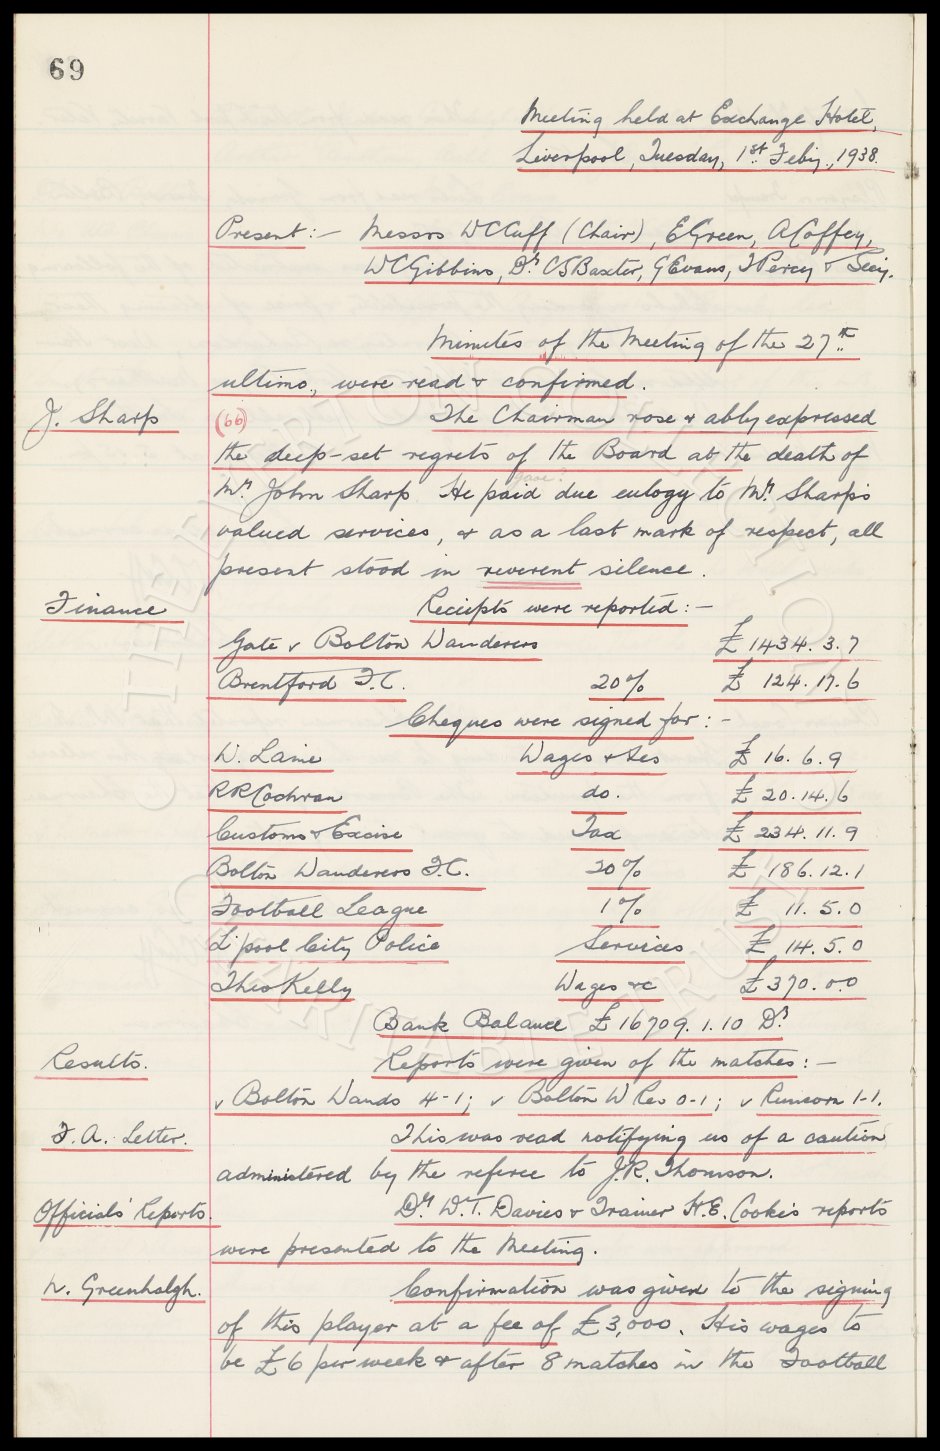 69
Meeting held at Exchange Hotel,
Liverpool, Tuesday, 1st Feby., 1938.
Present:- Messrs W C Cuff (Chair), E Green, A Coffey,
W C Gibbins, Dr. C S Baxter, G Evans, T Percy & Secy.
Minutes of the Meeting of the 27th
ultimo, were read & confirmed.
J. Sharp (66) The Chairman rose & ably expressed
the deep-set regrets of the Board at the death of
Mr. John Sharp. He paid due eulogy to Mr. Sharp's
valued services, & as a last mark of respect, all
present stood in reverent silence.
Finance Receipts were reported:-
Gate v Bolton Wanderers £1434.3.7
Brentford F.C. 20% £124.17.6
Cheques were signed for:-
W. Laine Wages & Tes £16.6.9
R R Cochran do. £20.14.6
Customs & Excise Tax £234.11.9
Bolton Wanderers F.C. 20% £186.12.1
Football League 1% £11.5.0
L'pool City Police Services £14.5.0
Theo Kelly Wages &c £370.0.0
Bank Balance £16709.1.10 Dr
Results. Reports were given of the matches:-
v Bolton Wands 4-1; v Bolton W Res 0-1; v Runcorn 1-1.
F.A. Letter. This was read notifying us of a caution
administered by the referee to J.R. Thomson.
Officials' Reports. Dr. W.T. Davies & Trainer H.E. Cooke's reports
were presented to the Meeting.
N. Greenhalgh. Confirmation was given to the signing
of this player at a fee of £3,000. His wages to
be £6 per week & after 8 matches in the Football
THE EVERTON COLLECTION
CHARITABLE TRUST